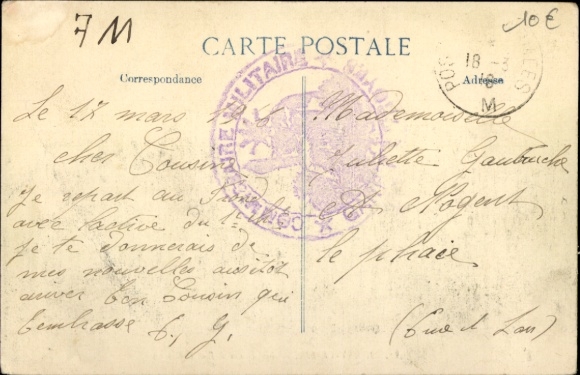 7 M
10 €
CARTE POSTALE
Correspondance
Adresse
MILITAIRE
18
18
M
Le 17 mars
cher Cousin
Je repart au
avec l'active du
je te donnerais de
mes nouvelles aussitot
arriver Ton Cousin qui
t'embrasse G.
Mademoiselle
Juliette
à Nogent
le phaie
(Eure et Loir)